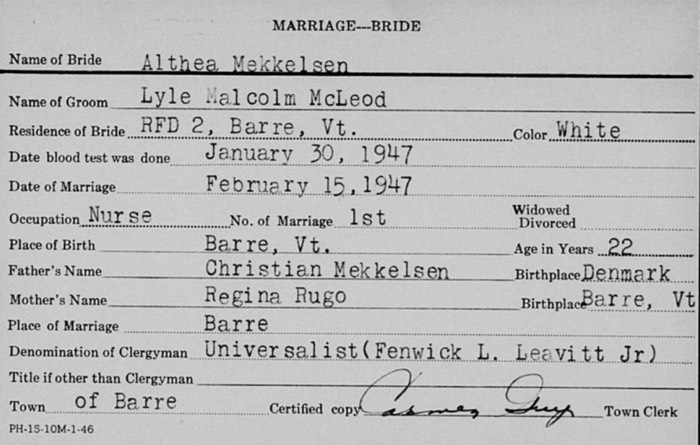 MARRIAGE---BRIDE
Name of Bride Althea Mekkelsen
Name of Groom Lyle Malcolm McLeod
Residence of Bride RFD 2, Barre, Vt. Color White
Date blood test was done January 30, 1947
Date of Marriage February 15,1947
Occupation Nurse No. of Marriage 1st Widowed Divorced
Place of Birth Barre, Vt. Age in Years 22
Father's Name Christian Mekkelsen Birthplace Denmark
Mother's Name Regina Rugo Birthplace Barre, Vt
Place of Marriage Barre
Denomination of Clergyman Universalist(Fenwick L. Leavitt Jr)
Title if other than Clergyman
Town of Barre Certified copy Town Clerk
PH-15-10M-1-46